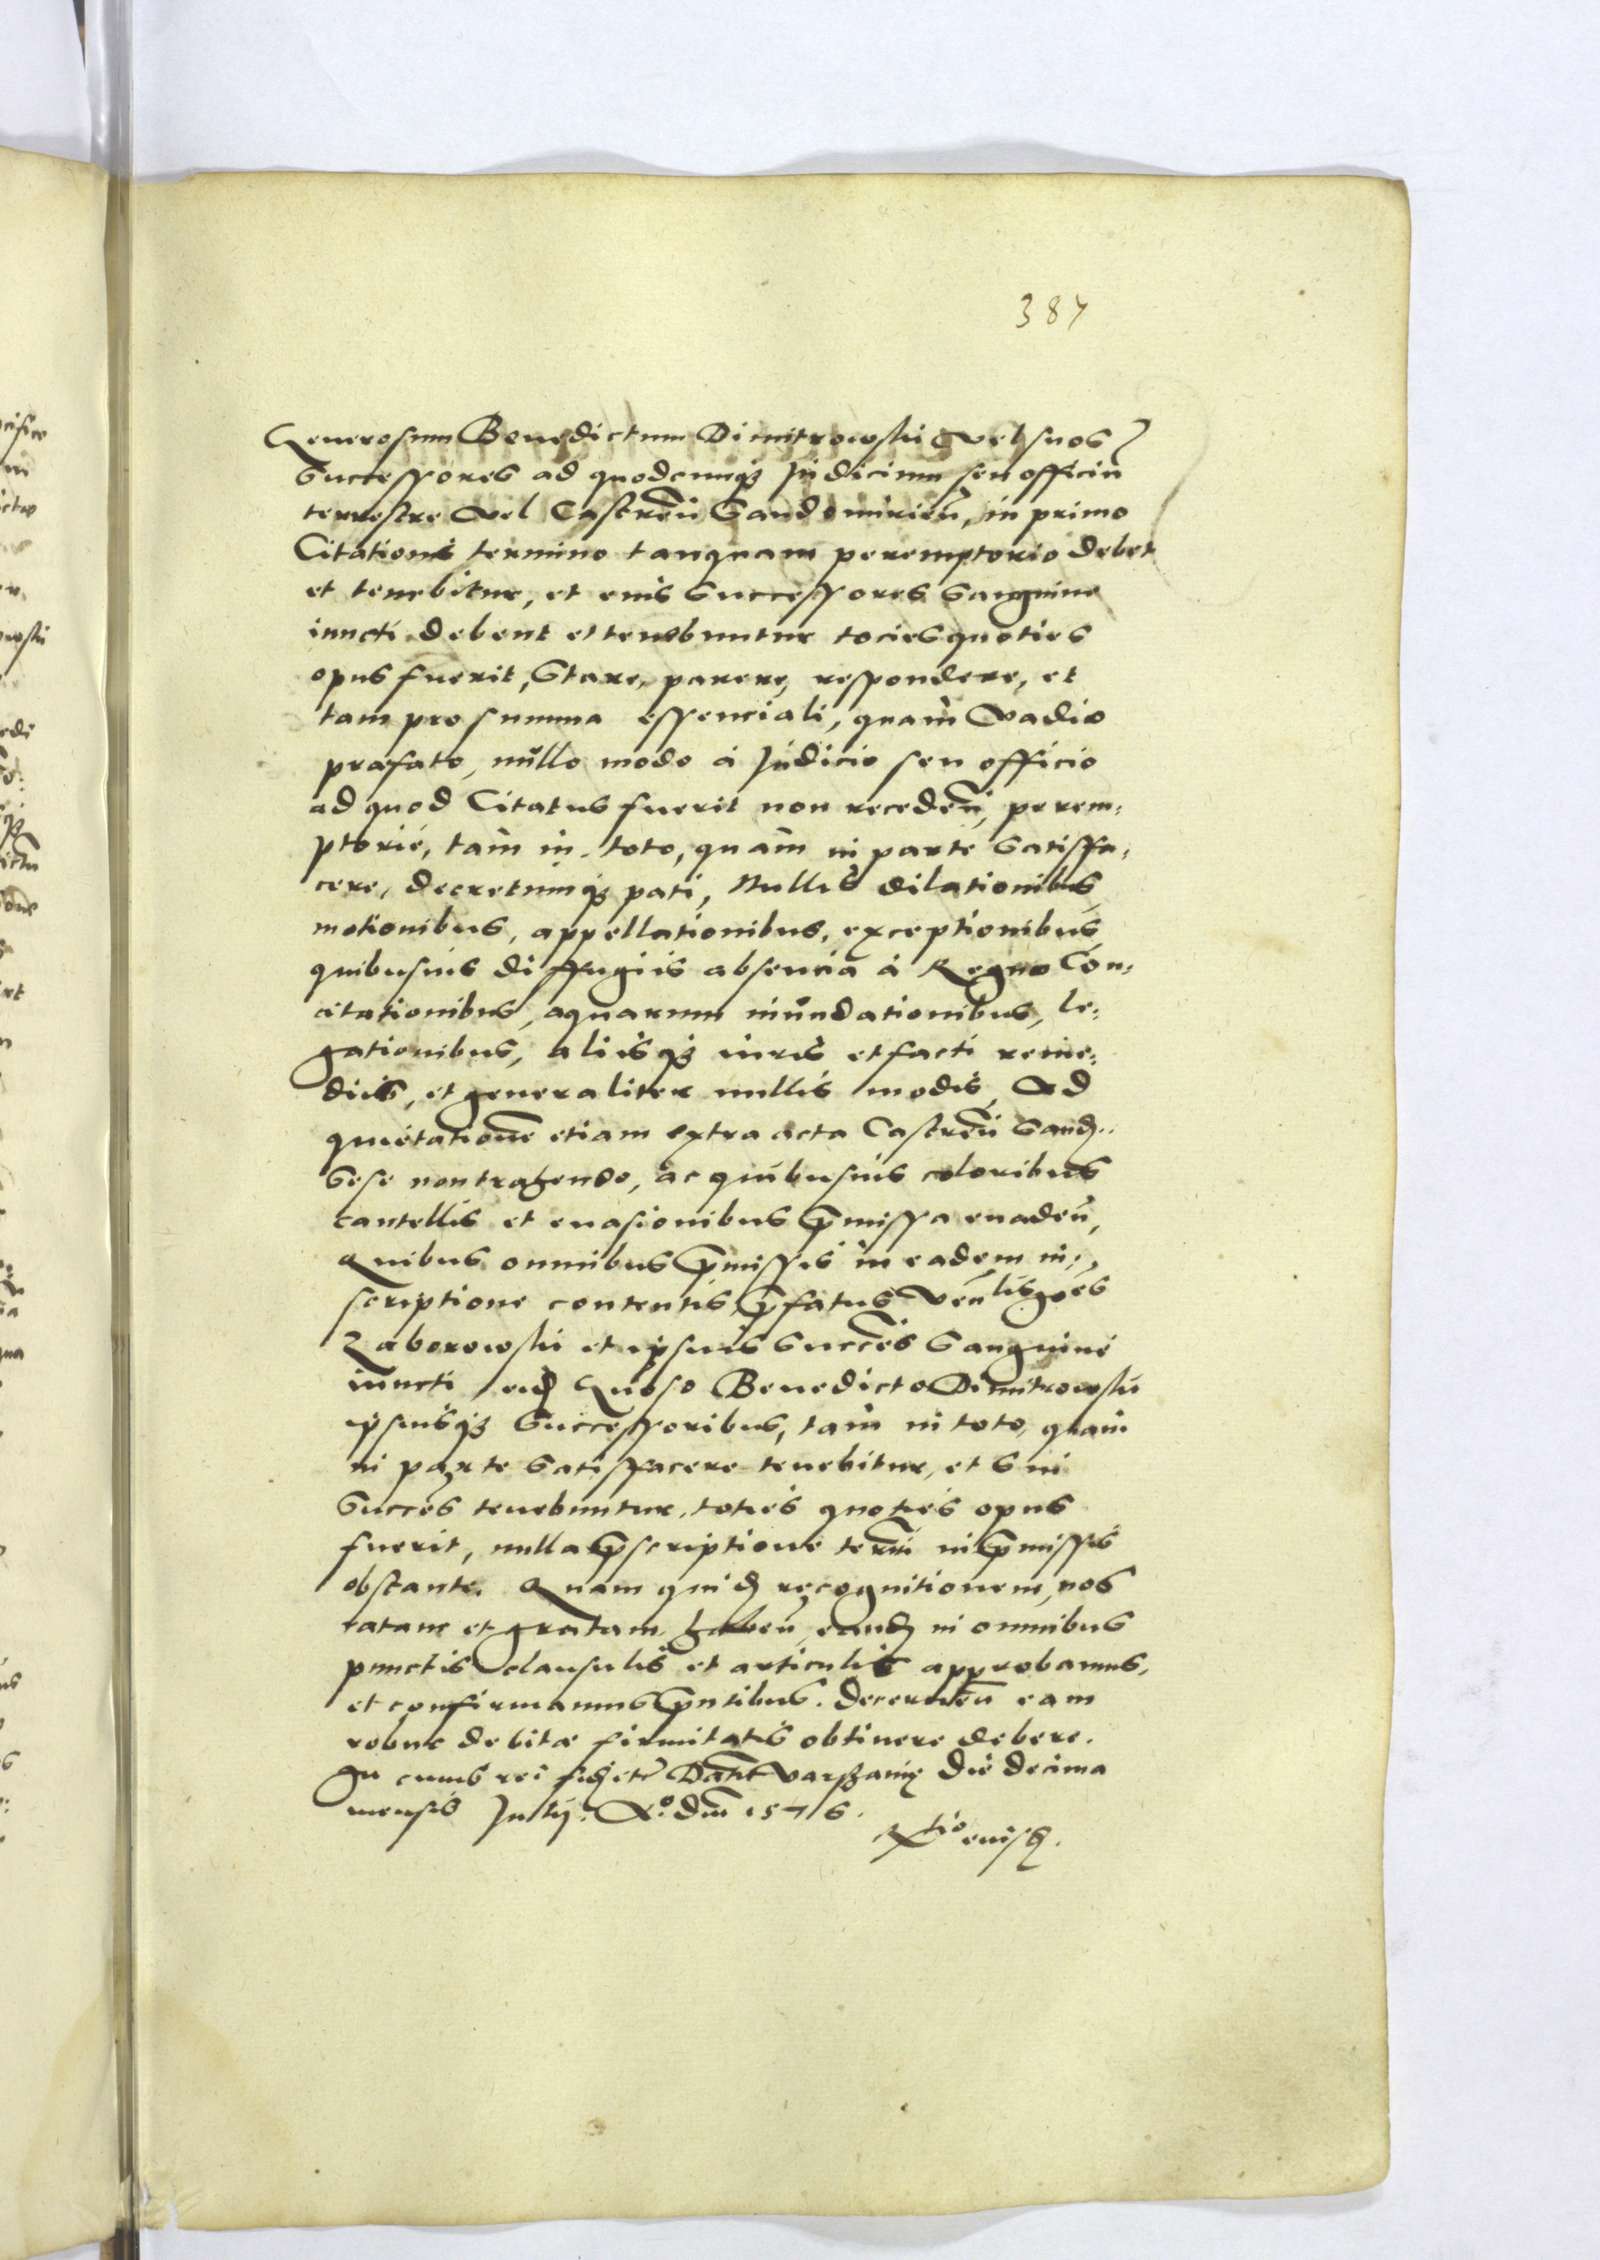 387
Generosum Benedictum Dimitrowski vel suos
Successores ad quodcunq(ue) Judicium seu officiū
terrestre vel Castreñ Sandomirieñ, in primo
Citationis termino tanquam peremptorio debet
et tenebitur, et eius Successores Sanguine
iuncti debent et tenebuntur tocies quoties
opus fuerit, Stare, parere, respondere, et
tam pro summa essenciali, quam Vadio
præfato, nullo modo à Judicio seu officio
ad quod Citatus fuerit non recedeñ, perem-
ptorie, tam in toto, quam in parte Satisfa-
cere, decretumq(ue) pati, Nullis dilationibus
motionibus, appellationibus, exceptionibus
quibusuis diffugiis absencia à Regno Con-
citationibus, aquarum inundationibus, le-
gationibus, aliisq(ue) iuris et facti reme-
diis, et generaliter nullis modis, Ad
quietationē etiam extra acta Castreñ Sand.
Sese non trahendo, ac quibusuis coloribus
cautellis et euasionibus p̄missa euadeñ,
Quibus omnibus p̄missis in eadem in-
scriptione contentis, p̄fatus
Zaborowski et ipsius Succēs Sanguine
iuncti eid Gnoso Benedicto Dimitrowski
ipsiusq(ue) Successoribus, tam in toto, quam
in parte Satisfacere tenebitur, et Sui
Succēs tenebuntur, toties quoties opus
fuerit, nulla p̄scriptione terr̄ in p̄missis
obstante. Quam quid recognitionem, nos
ratam et gratam habeñ, eand in omnibus
punctis clausulis et articulis approbamus,
et confirmamus p̄ntibus. Decerneñ eam
robur debitæ firmitatis obtinere debere.
In cuius rei fid etc Daṫ Varssauiæ die decima
mensis Julij. Aº. dni 1576.